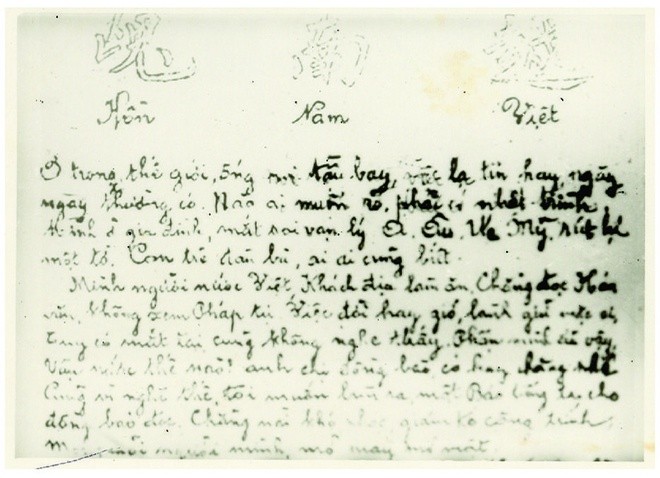 Hồn Nam Việt
Ở trong thế giới, ống nói tầu bay, việc lạ tin hay, ngày
ngày thường có. Nào ai muốn rõ, phải có nhật trình
ở gia đình, mắt soi vạn lý Á Âu Mỹ, rút lại
một tờ. Con trẻ đàn bà, ai ai cũng biết.
Mình người nước Việt Khách địa làm ăn, Chẳng đọc Hán
văn, không xem Pháp tự. Việc đời hay gió, lành giữ mặc ai
Tuy có mắt tai cũng không nghe thấy. Phận mình dù vậy,
Vận nước thế nào? anh chị đồng bào có hay chăng nhẽ
Cũng vì nghĩ thế, tôi muốn ra, một cho
đồng bào đọc. Chẳng nài khó nhọc, quản công trình
người mình, mở mày mở mặt.